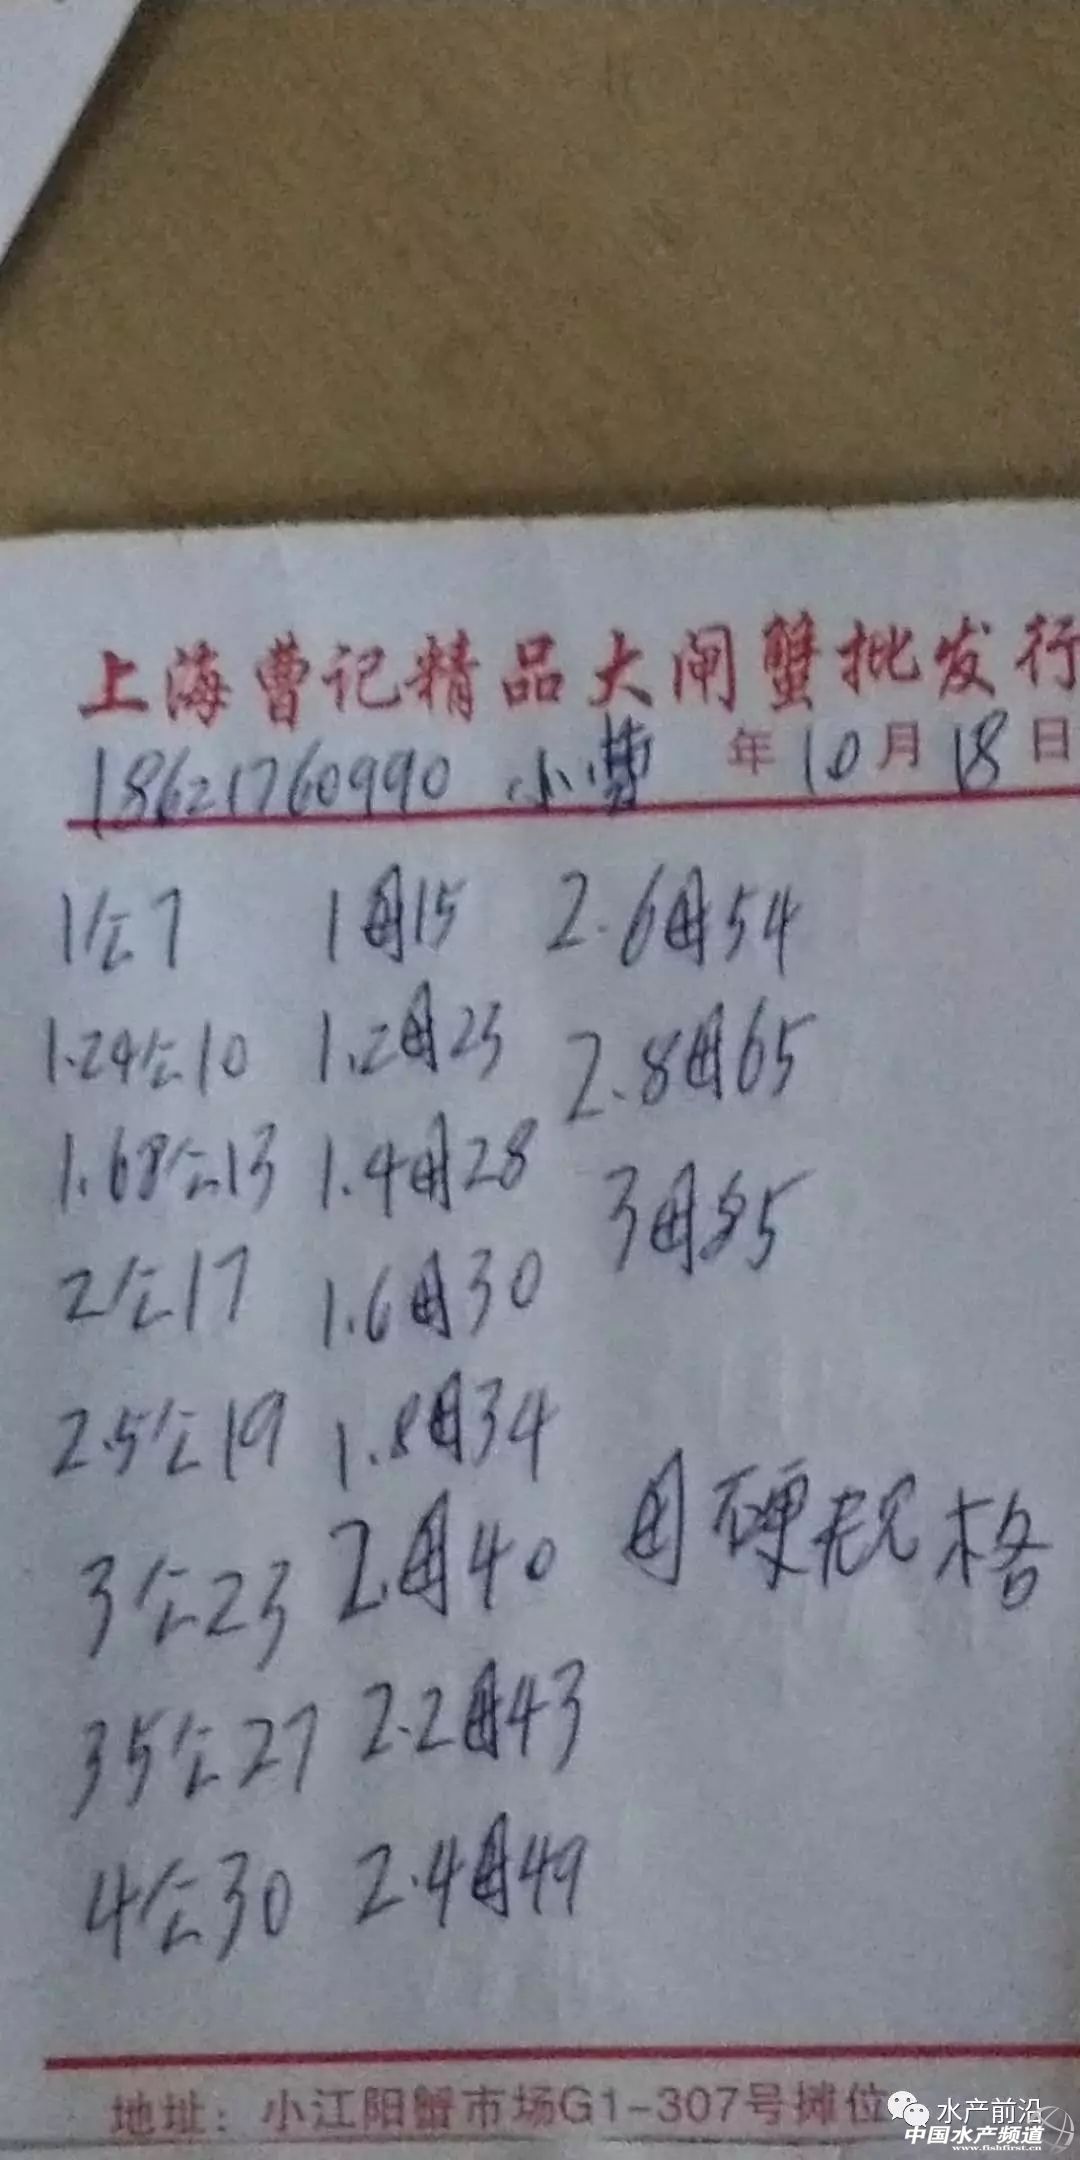 上海曹记精品大闸蟹批发行
18621760990 小曹 年10月18日
1公7 1母15 2.6母54
1.24公10 1.2母25 2.8母65
1.68公13 1.4母28 3母85
2公17 1.6母30
2.5公19 1.8母34
母硬规格
3公23 2.母40
35公27 2.2母43
4公30 2.4母49
地址:小江阳蟹市场G1-307号摊位
水产前沿
中国水产频道
www.fishfirst.cn